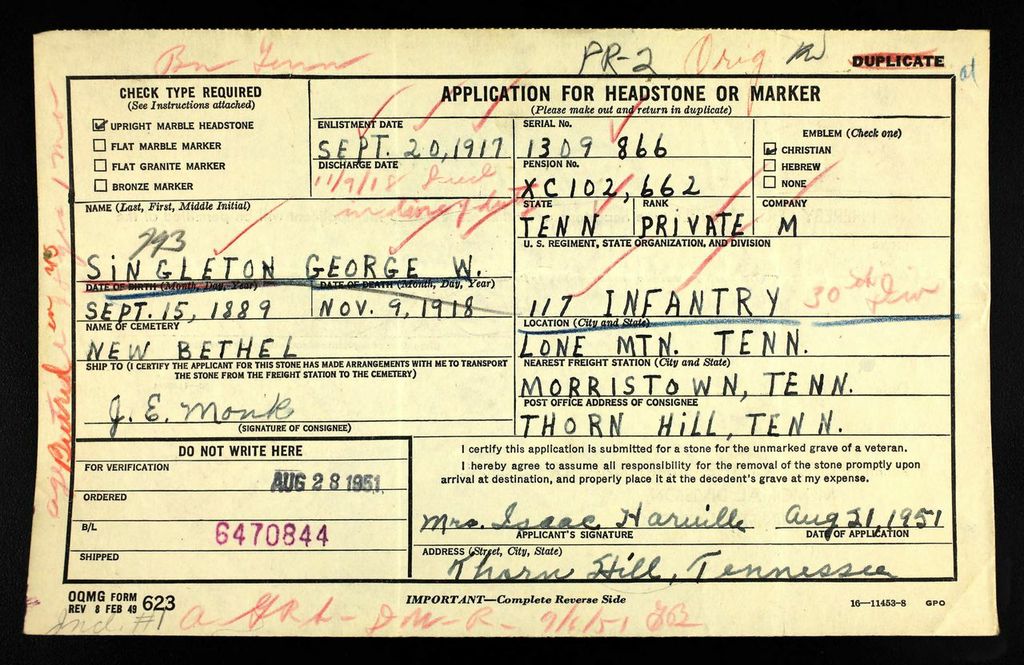 Bn Tenn PR-2 Orig DUPLICATE
CHECK TYPE REQUIRED
(See Instructions attached)
UPRIGHT MARBLE HEADSTONE
FLAT MARBLE MARKER
FLAT GRANITE MARKER
BRONZE MARKER
APPLICATION FOR HEADSTONE OR MARKER
(Please make out and return in duplicate)
ENLISTMENT DATE
SEPT. 20, 1917
DISCHARGE DATE
11/9/18 Died
in line of duty
SERIAL No.
1309 866
PENSION No.
XC102,662
EMBLEM (Check one)
CHRISTIAN
HEBREW
NONE
STATE RANK COMPANY
TENN PRIVATE M
NAME (Last, First, Middle Initial)
793
SINGLETON GEORGE W.
U. S. REGIMENT, STATE ORGANIZATION, AND DIVISION
117 INFANTRY 30th Div
DATE OF BIRTH (Month, Day, Year) DATE OF DEATH (Month, Day, Year)
SEPT. 15, 1889 NOV. 9, 1918
NAME OF CEMETERY
NEW BETHEL
LOCATION (City and State)
LONE MTN. TENN.
SHIP TO (I CERTIFY THE APPLICANT FOR THIS STONE HAS MADE ARRANGEMENTS WITH ME TO TRANSPORT
THE STONE FROM THE FREIGHT STATION TO THE CEMETERY)
J. E. Monk
(SIGNATURE OF CONSIGNEE)
NEAREST FREIGHT STATION (City and State)
MORRISTOWN, TENN.
POST OFFICE ADDRESS OF CONSIGNEE
THORN HILL, TENN.
DO NOT WRITE HERE
FOR VERIFICATION
AUG 28 1951
ORDERED
B/L
6470844
SHIPPED
I certify this application is submitted for a stone for the unmarked grave of a veteran.
I hereby agree to assume all responsibility for the removal of the stone promptly upon
arrival at destination, and properly place it at the decedent's grave at my expense.
Mrs. Isaac Harville Aug 21, 1951
APPLICANT'S SIGNATURE DATE OF APPLICATION
ADDRESS (Street, City, State)
Thorn Hill, Tennessee
OQMG FORM
REV 8 FEB 49 623
IMPORTANT—Complete Reverse Side
16—11453-8 GPO
Ind. #1